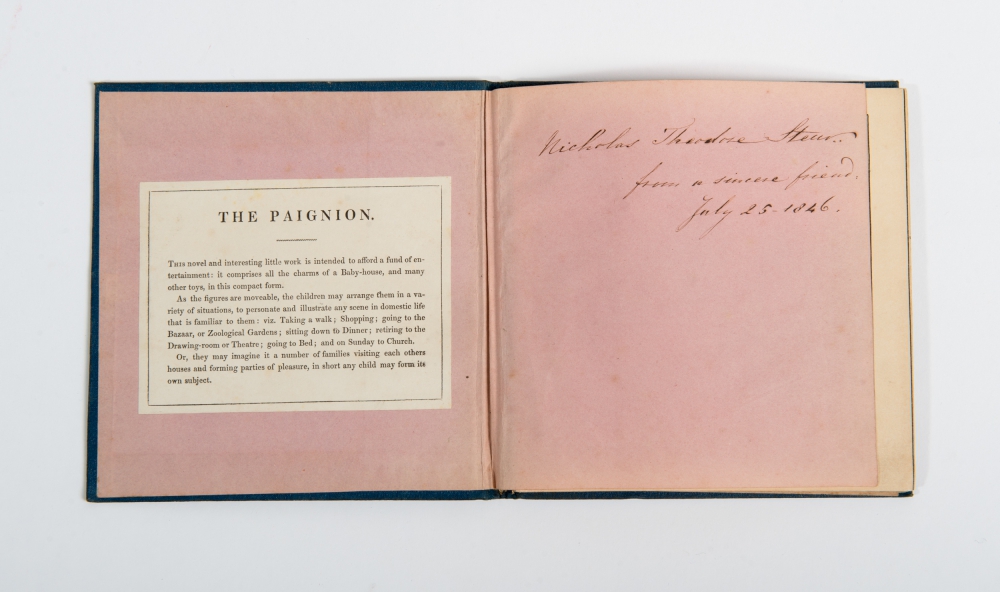 THE PAIGNION.
THIS novel and interesting little work is intended to afford a fund of en-
tertainment: it comprises all the charms of a Baby-house, and many
other toys, in this compact form.
As the figures are moveable, the children may arrange them in a va-
riety of situations, to personate and illustrate any scene in domestic life
that is familiar to them: viz. Taking a walk; Shopping; going to the
Bazaar, or Zoological Gardens; sitting down to Dinner; retiring to the
Drawing-room or Theatre; going to Bed; and on Sunday to Church.
Or, they may imagine it a number of families visiting each others
houses and forming parties of pleasure, in short any child may form its
own subject.
Nicholas Theodore
from a sincere friend.
July 25-1846.